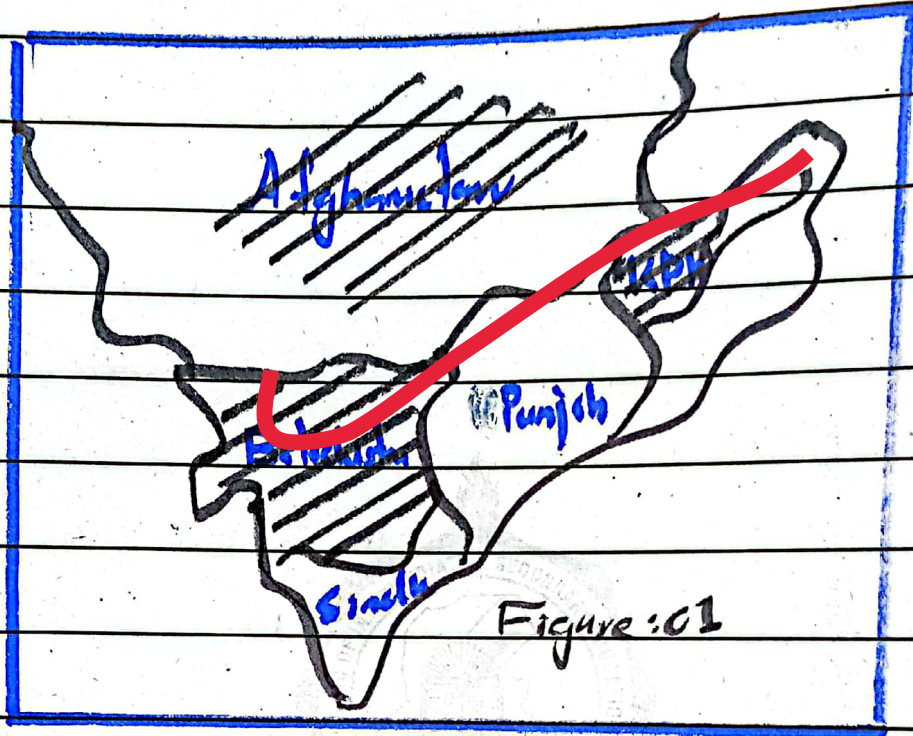 Afghanistan
KPK
Punjab
Baluchistan
Sindh
Figure:01